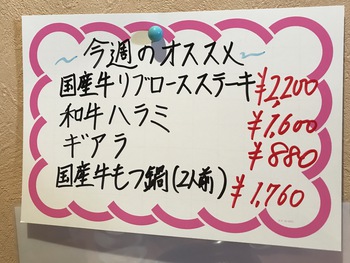 〜今週のオススメ〜
国産牛リブロースステーキ ¥2,200
和牛ハラミ ¥1,600
ギアラ ¥880
国産牛もつ鍋(2人前) ¥1,760